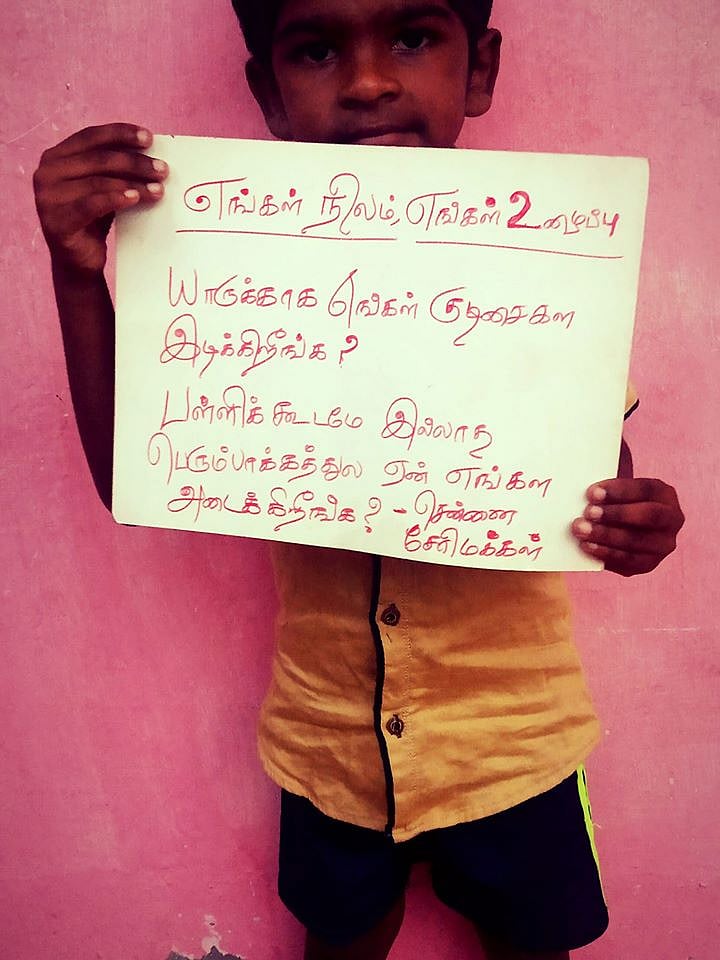 எங்கள் நிலம், எங்கள் உழைப்பு
யாருக்காக எங்கள் குடிசைகள
இடிக்கிறீங்க?
பள்ளிக்கூடமே இல்லாத
பெரும்பாக்கத்துல ஏன் எங்கள
அடைக்கிறீங்க? - சென்னை
சேரிமக்கள்